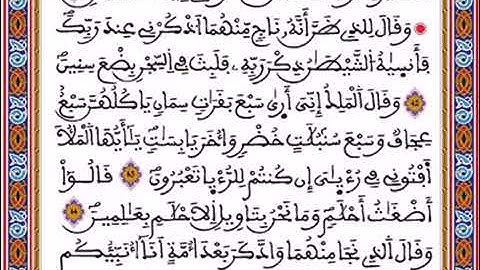 وَقَالَ لِلذِے ظَنَّ أَنَّهُۥ نَاجٖ مِّنْهُمَا اَ۟ذْكُرْنِے عِندَ رَبِّكَۖ
فَأَنس۪يٰهُ اُ۬لشَّيْطَٰنُ ذِكْرَ رَبِّهِۦ فَلَبِثَ فِے اِ۬لسِّجْنِ بِضْعَ سِنِينَۖ
٤٢ وَقَالَ اَ۬لْمَلِكُ إِنِّيَ أَر۪يٰ سَبْعَ بَقَرَٰتٖ سِمَانٖ يَاكُلُهُنَّ سَبْعٌ
عِجَافٞ وَسَبْعَ سُنۢبُلَٰتٍ خُضْرٖ وَأُخَرَ يَابِسَٰتٖۖ يَٰٓأَيُّهَا اَ۬لْمَلَأُ
اَ۬فْتُونِے فِے رُءْيٰ۪يَ إِن كُنتُمْ لِلرُّءْي۪ا تَعْبُرُونَۖ ٤٣ قَالُوٓاْ
أَضْغَٰثُ أَحْلَٰمٖۖ وَمَا نَحْنُ بِتَاوِيلِ اِ۬لَاحْلَٰمِ بِعَٰلِمِينَۖ ٤٤
وَقَالَ اَ۬لذِے نَجَا مِنْهُمَا وَادَّكَرَ بَعْدَ أُمَّةٍ اَنَآ أُنَبِّئُكُم